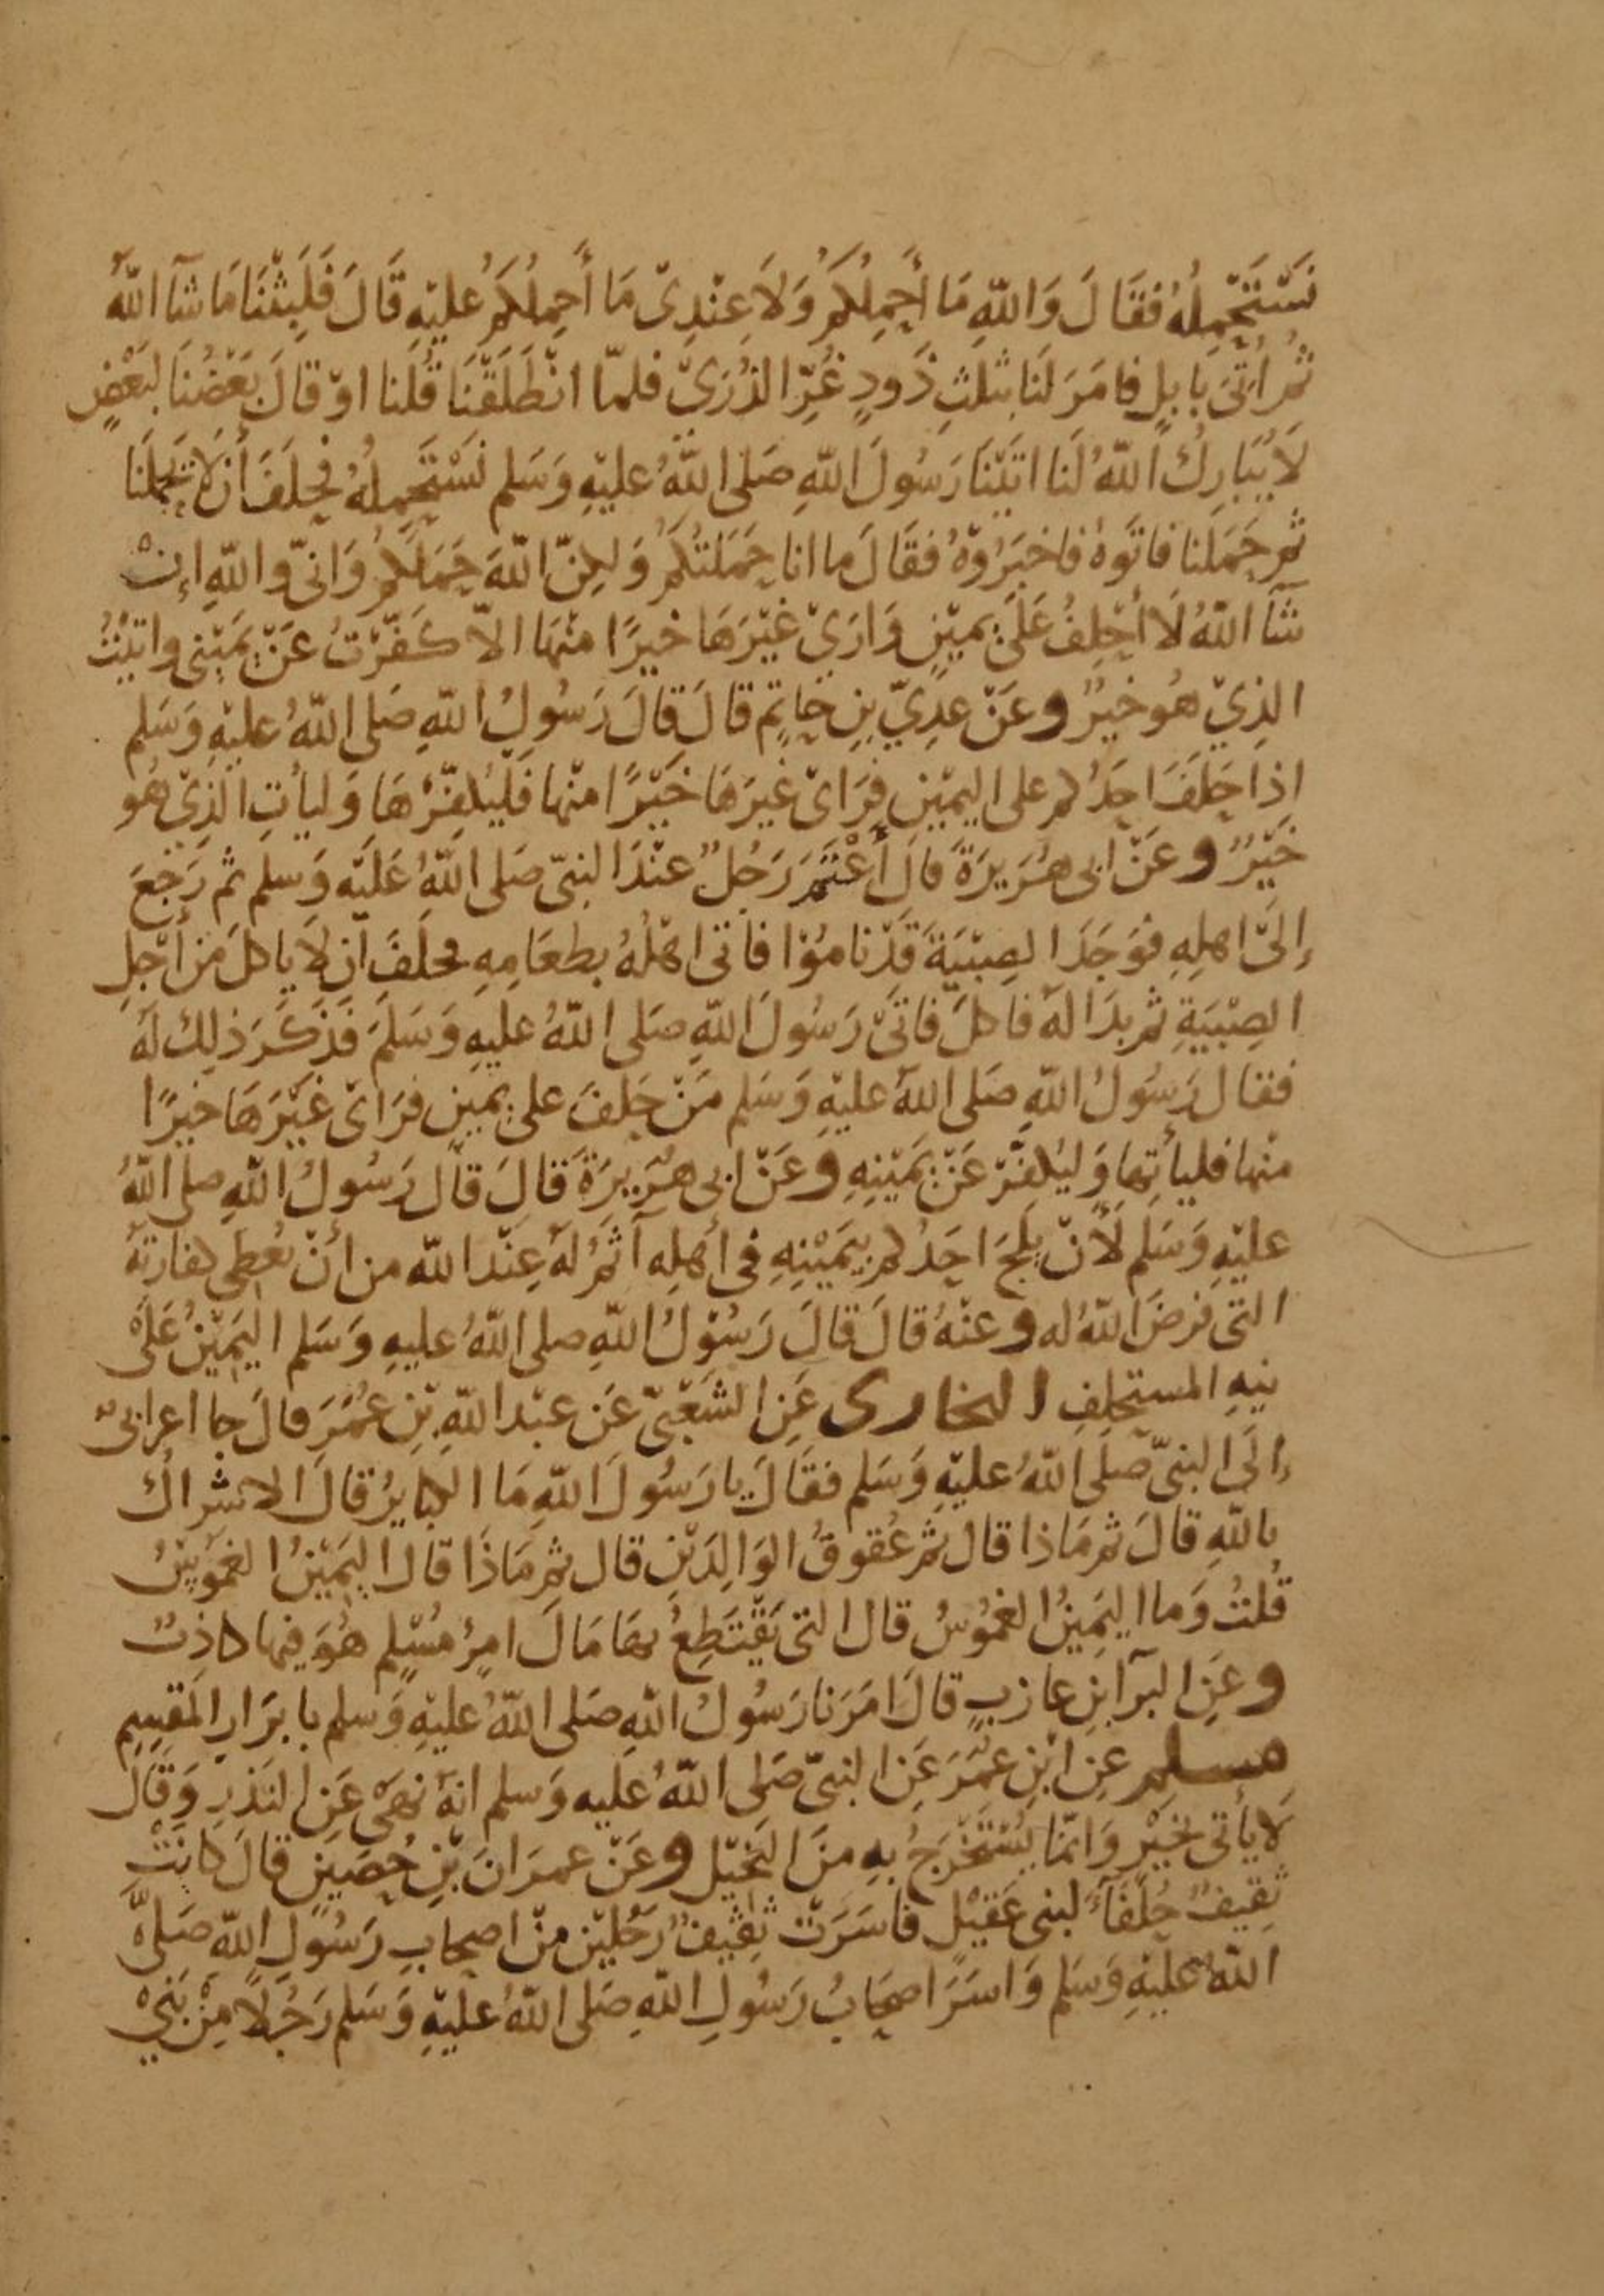 نَسْتَحْمِلُهُ فقَالَ وَاللّٰهِ مَا أَحْمِلُكُمْ وَلَا عِنْدِىْ مَا أَحْمِلُكُمْ عليْهِ قَالَ فَلَبِثْنَا مَا شَآ اللّٰهُ
ثُم أُتىَ بإبلٍ فامَرَ لَنا بثلٰثِ ذَودٍ غُرِّ الذُرَىْ فلمّا انْطَلَقْنَا قُلنا اوْ قالَ بَعْضُنَا لبَعْضٍ
لَا يُبَارِكُ اللّٰهُ لَنا اتيْنَا رَسُولَ اللّٰهِ صَلى اللّٰهُ عليْهِ وَسَلم نَسْتَحْمِلُهُ فحلَفَ أن لا يحملَنَا
ثم حَمَلنا فاتَوهُ فاخبَرُوْهُ فقَالَ ما انا حَمَلتُكُمْ وَلكِنّ اللّٰهَ حَمَلَكُمْ وَانىّ واللّٰهِ إنْ
شَآ اللّٰهُ لَا أحْلِفُ عَلَى يميْنٍ وَارَىْ غيْرَهَا خيرًا منْهَا الّا كَفّرْتُ عَنْ يَمَيْنى واتيْتُ
الذِيْ هُو خيرٌ وعَنْ عدِيّ بنِ حاتمٍ قالَ قالَ رَسُولُ اللّٰهِ صَلى اللّٰهُ عليْهِ وَسَلم
اذا حَلَفَ احَدُكم على اليميْنِ فرَاىْ غيرَهَا خَيْرًا منْها فَلْيُكفِّرْهَا وَليأتِ الّذِىْ هُو
خَيْرٌ وعَنْ ابى هُرَيرَةَ قالَ أعْتَمَ رَجُلٌ عنْدَ النبىّ صَلى اللّٰهُ عَليْهِ وَسلم ثم رَجعَ
إلىَ اهلِهِ فوَجَدَ الصِبْيَةَ قَدْ نامُوْا فاتى اهْلُهُ بطعَامِهِ فحلَفَ أن لَا ياكل مِن أَجْلِ
الصِبْيَةِ ثم بدَا لهُ فاكلَ فاتىَ رَسُولَ اللّٰهِ صَلى اللّٰهُ عليهِ وَسَلمَ فَذكَرَ ذلِكَ لهُ
فقالَ رَسُولُ اللّٰهِ صَلى اللّٰهُ عليْهِ وَسَلم مَنْ حَلفَ على يمينٍ فرَاىْ غيْرَهَا خيرًا
منْها فليأتِها وَليُكفّرْ عَنْ يَمَيْنِهِ وعَنْ ابى هُرَيرَةَ قالَ قالَ رَسُولُ اللّٰهِ صلى اللّٰهُ
عليْهِ وَسَلم لَأنْ يَلجّ احَدُكم بيَمَيْنِهِ فى أهْلِهِ آثمُ لهُ عِنْدَ اللّٰه من أنْ يُعطِى كفارتَهُ
التى فرَضَ اللّٰهُ له وعنْهُ قالَ قالَ رَسُوْلُ اللّٰهِ صلى اللّٰهُ عليهِ وَسَلم اليَميْنُ عَلَى
نيهِ المستحلِفِ البخارى عَنِ الشَعْبىّ عَن عبْد اللّٰهِ بْنِ عُمَرَ قالَ جا اعرابىٌ
إلَى النبىّ صَلَى اللّٰهُ عليْهِ وَسَلم فقَالَ يا رَسُولَ اللّٰهِ مَا الكبايرُ قالَ الاشراكُ
باللّٰهِ قالَ ثم مَاذا قال ثم عُقوقُ الوَالِدَيْنِ قال ثم مَاذَا قالَ اليَمَيْنُ الغمُوْسُ
قُلتُ وَما اليَمِينُ الغمُوْسُ قال التى يَقْتَطِعُ بهَا مَالَ امرِئٍ مُسْلِمٍ هُوَ فيْها كاذِبٌ
وعَنِ البرآ بنِ عازبٍ قالَ امَرَنا رَسُولُ اللّٰهِ صَلى اللّٰهُ عليْهِ وَسلم بابرَارِ المُقسِمِ
مسلم عنِ ابْنِ عمَرَ عَنِ النبىّ صَلى اللّٰهُ عَليه وَسلم انهُ نهَى عَنِ النَذرِ وَقَالَ
لا يأتى بخيْرٍ وَانمّا يُسْتَخْرَجُ بهِ منَ البَخيْلِ وعَنْ عمرَانَ بْنِ حُصَيْنٍ قالَ كانَتْ
ثقِيفٌ حُلفَآءَ لبنى عَقيْلٍ فأسَرَتْ ثقِيفٌ رَجُليْنِ منْ اصحابِ رَسُولِ اللّٰهِ صَلى
اللّٰهُ عليْهِ وَسَلم وَاسَرَ اصحَابُ رَسُولِ اللّٰهِ صَلى اللّٰهُ عليْهِ وَسَلم رَجُلاً مِنْ بَنىْ